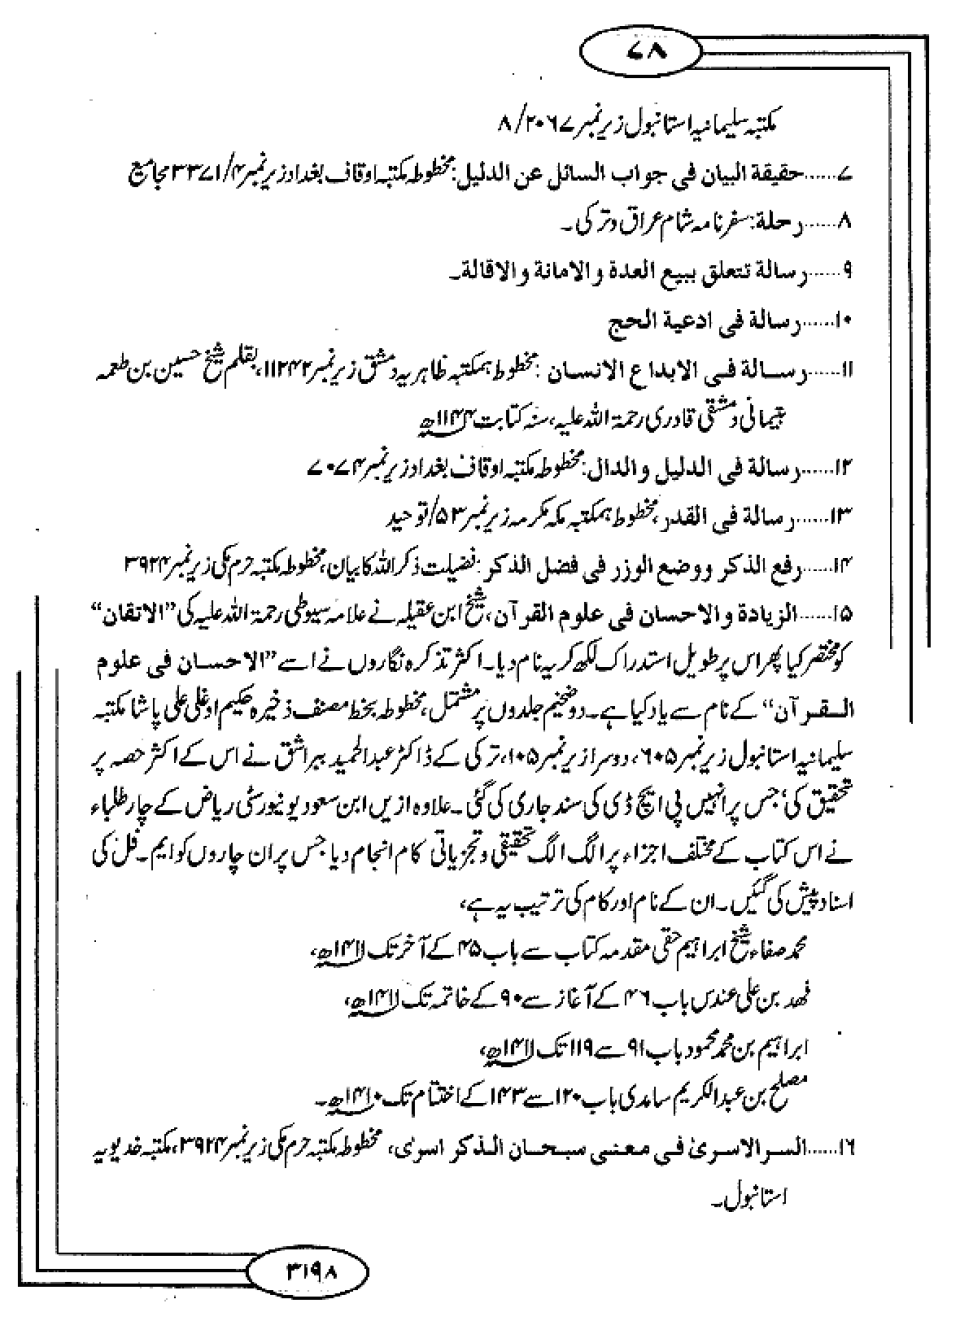 ۷۸
مکتبہ سلیمانیہ استانبول زیر نمبر ۲۰۶۷/۸
۷......حقیقة البیان فی جواب السائل عن الدلیل: مخطوطہ مکتبہ اوقاف بغداد زیر نمبر ۴/۳۳۷۱ مجامیع
۸......رحلة: سفر نامہ شام عراق و ترکی۔
۹......رسالة تتعلق ببیع العدة و الامانة و الاقالة۔
۱۰......رسالة فی ادعیة الحج
۱۱......رسالة فی الابداع الانسان: مخطوطہ مکتبہ ظاہریہ دمشق زیر نمبر ۱۱۲۴۲، بقلم شیخ حسین بن طعمہ
بیمانی دمشقی قادری رحمۃ اللہ علیہ، سنہ کتابت ۱۱۴۴ھ
۱۲......رسالة فی الدلیل والدال: مخطوطہ مکتبہ اوقاف بغداد زیر نمبر ۷۰۷۴
۱۳......رسالة فی القدر، مخطوطہ مکتبہ مکہ مکرمہ زیر نمبر ۵۳/توحید
۱۴......رفع الذکر ووضع الوزر فی فضل الذکر: فضیلت ذکر اللہ کا بیان، مخطوطہ مکتبہ حرم مکی زیر نمبر ۳۹۲۴
۱۵......الزیادة والاحسان فی علوم القرآن، شیخ ابن عقیلہ نے علامہ سیوطی رحمۃ اللہ علیہ کی ”الاتقان“
کو مختصر کیا پھر اس پر طویل استدراک لکھ کر یہ نام دیا۔ اکثر تذکرہ نگاروں نے اسے ”الاحسان فی علوم
القرآن“ کے نام سے یاد کیا ہے۔ دو ضخیم جلدوں پر مشتمل، مخطوطہ بخط مصنف ذخیرہ حکیم اوغلی علی پاشا مکتبہ
سلیمانیہ استانبول زیر نمبر ۶۰۵، دوسرا زیر نمبر ۱۰۵، ترکی کے ڈاکٹر عبدالحمید بیراشق نے اس کے اکثر حصہ پر
تحقیق کی، جس پر انہیں پی ایچ ڈی کی سند جاری کی گئی۔ علاوہ ازیں ابن سعود یونیورسٹی ریاض کے چار طلباء
نے اس کتاب کے مختلف اجزاء پر الگ الگ تحقیقی و تجزیاتی کام انجام دیا جس پر ان چاروں کو ایم۔ فل کی
اسناد پیش کی گئیں۔ ان کے نام اور کام کی ترتیب یہ ہے،
محمد صفاء شیخ ابراہیم حقی مقدمہ کتاب سے باب ۴۵ کے آخر تک ۱۴۱۱ھ،
فہد بن علی عندس باب ۴۶ کے آغاز سے ۹۰ کے خاتمہ تک ۱۴۱۱ھ،
ابراہیم بن محمد محمود باب ۹۱ سے ۱۱۹ تک ۱۴۱۱ھ،
مصلح بن عبدالکریم سامدی باب ۱۲۰ سے ۱۴۳ کے اختتام تک ۱۴۱۰ھ۔
۱۶......السر الاسریٰ فی معنی سبحان الذکر اسریٰ، مخطوطہ مکتبہ حرم مکی زیر نمبر ۳۹۲۴، مکتبہ خدیویہ
استانبول۔
۳۱۹۸